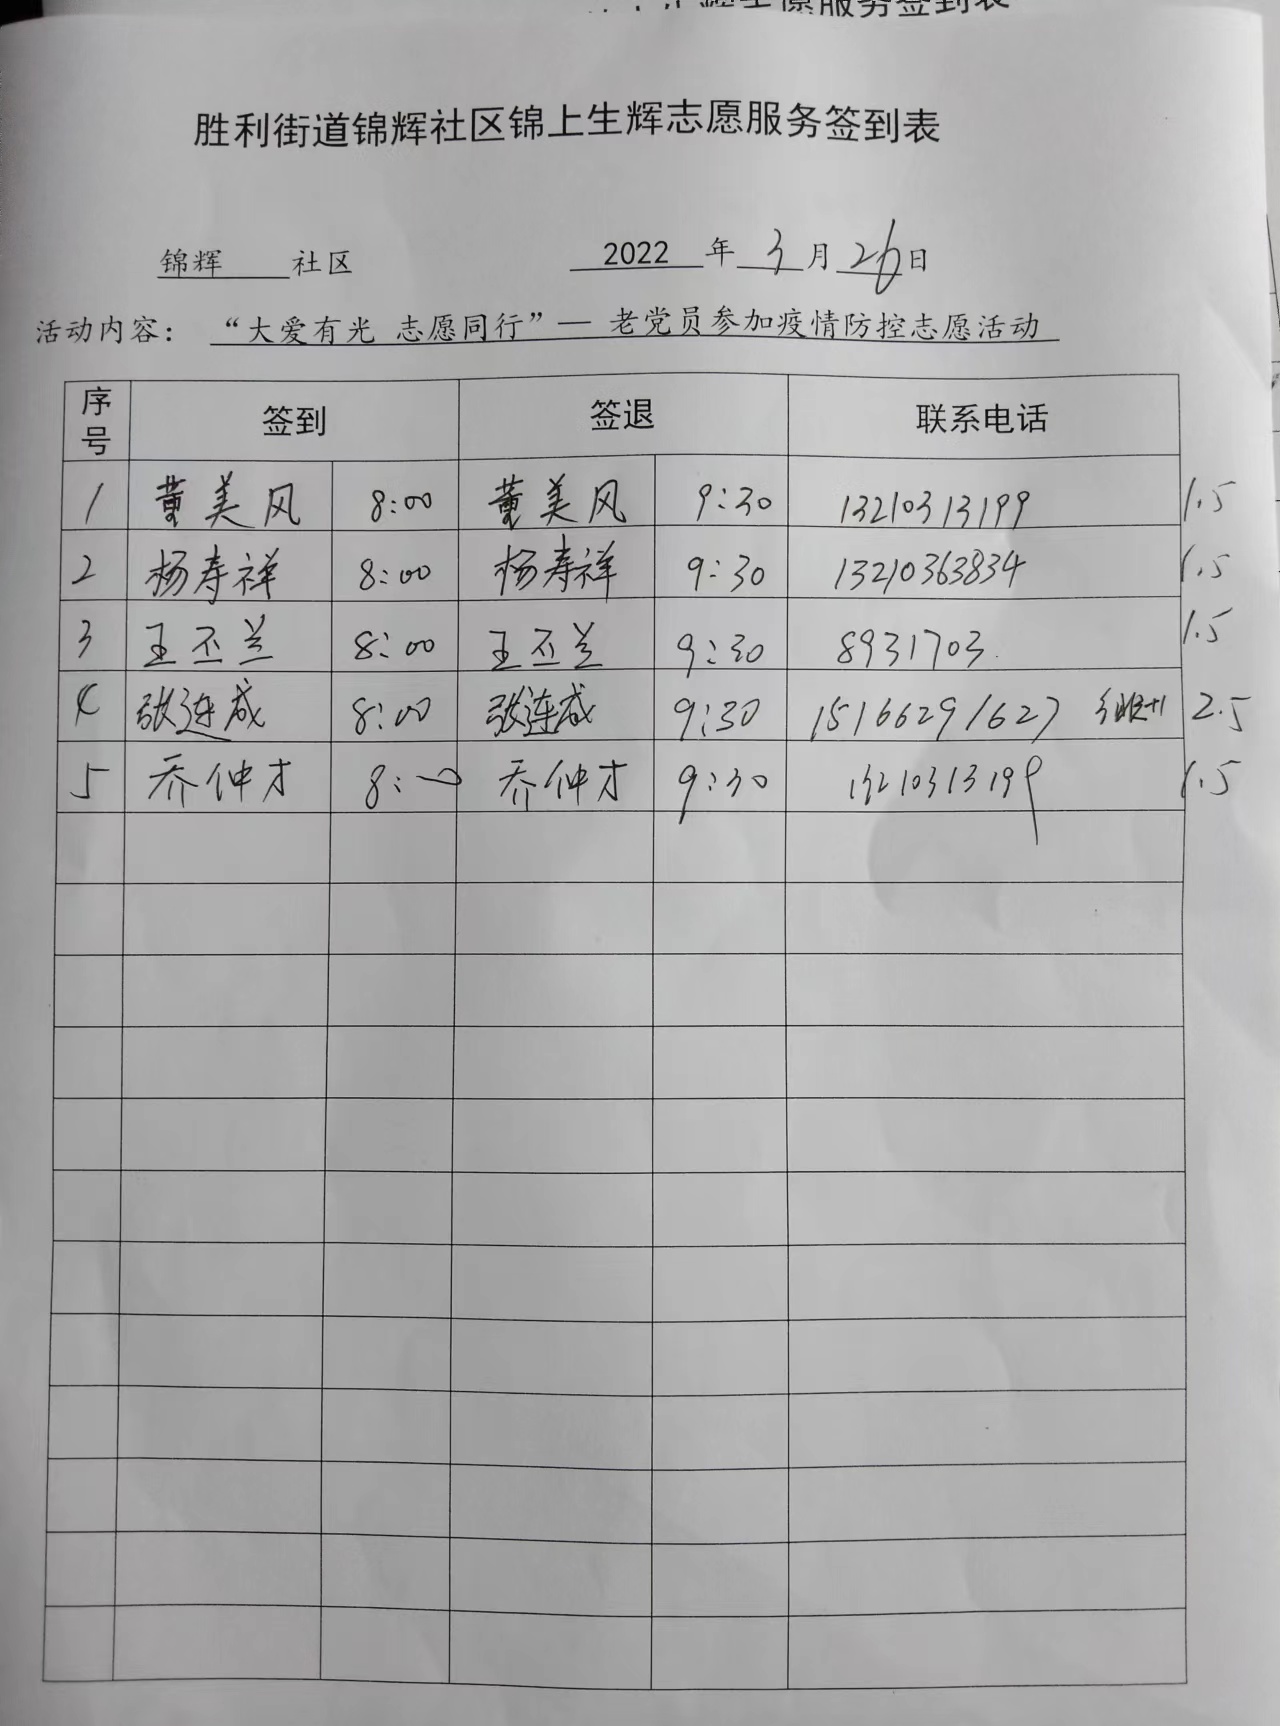 志愿服务签到表
胜利街道锦辉社区锦上生辉志愿服务签到表
锦辉 社区 2022 年 3 月 26 日
活动内容： “大爱有光 志愿同行”— 老党员参加疫情防控志愿活动
序号 签到 签退 联系电话
1 董美风 8:00 董美风 9:30 13210313199 1.5
2 杨寿祥 8:00 杨寿祥 9:30 13210363834 1.5
3 王丕兰 8:00 王丕兰 9:30 8931703. 1.5
4 张连成 8:00 张连成 9:30 15166291627 +1 2.5
5 乔仲才 8:00 乔仲才 9:30 13210313199 1.5